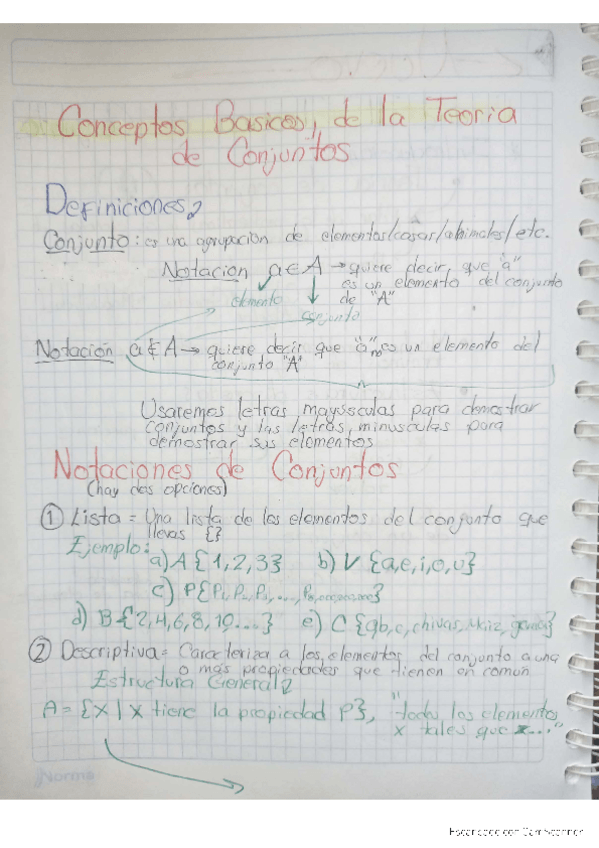 Conceptos Basicos, de la Teoria
de Conjuntos
Definiciones
Conjunto: es una agrupación de elementos/cosas/animales/etc.
Notacion a∈A → quiere decir, que "a"
es un elemento del conjunto
de "A"
elemento
conjunto
Notación a∉A → quiere decir que "a" no es un elemento del
conjunto "A"
Usaremos letras mayúsculas para demostrar
conjuntos y las letras, minusculas para
demostrar sus elementos
Notaciones de Conjuntos
(hay dos opciones)
① Lista = Una lista de los elementos del conjunto que
llevas {}
Ejemplo:
a) A {1,2,3} b) V {a,e,i,o,u}
c) P{P₁,P₂,P₃,...,
d) B={2,4,6,8,10...} e) C {gb,c,chivas,
② Descriptiva = Caracteriza a los elementos del conjunto a una
o más propiedades que tienen en común
Estructura General
A = {x | x tiene la propiedad P}, "todos los elementos
x tales que x..."
Norma
Escaneado con CamScanner